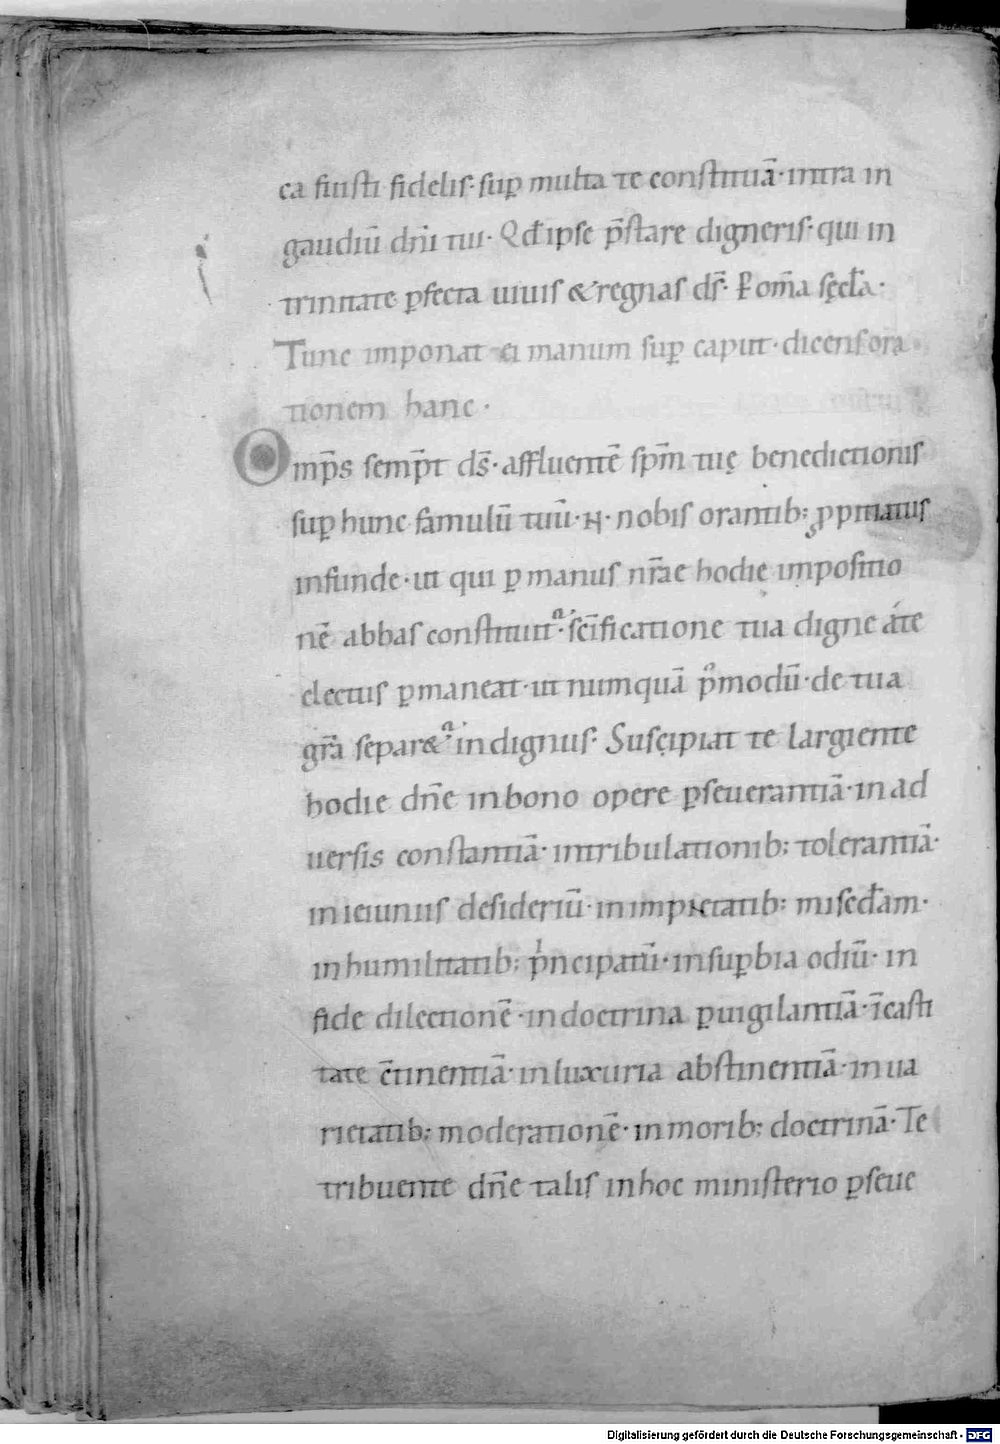 ca fuisti fidelis· sup̱ multa te constituā· intra in
gaudiū dn̄i tui· Qd̄ ipse p̄stare digneris· qui in
trinitate ꝑfecta uiuis & regnas ds̄· P om̄a sęcl̄a·
Tunc imponat ei manum suꝑ caput· dicens ora
tionem hanc·
Omp̄s semp̄t ds̄· affluentē sp̄m tuę benedictionis
suꝑ hunc famulū tuū· N· nobis orantib; ꝓpitiatus
infunde· ut qui ꝑ manus nr̄ae hodie impositio
nē abbas constituitᵃ· sc̄ificatione tua digne áte
electus ꝑmaneat· ut numquā pͦmodū· de tua
gr̄a separ&ᵃ indignus· Suscipiat te largiente
hodie dn̄e in bono opere ꝑseuerantiā· in ad
uersis constantiā· in tribulationib; tolerantiā·
in ieiuniis desideriū· in impietatib; misecd̄am·
in humilitatib; pͥncipatū· in suꝑbia odiū· in
fide dilectionē· in doctrina ꝑuigilantiā· ī casti
tate c̄tinentiā· in luxuria abstinentiā· in ua
rietatib; moderationē· in morib; doctrinā· Te
tribuente dn̄e talis in hoc ministerio ꝑseue
Digitalisierung gefördert durch die Deutsche Forschungsgemeinschaft - DFG